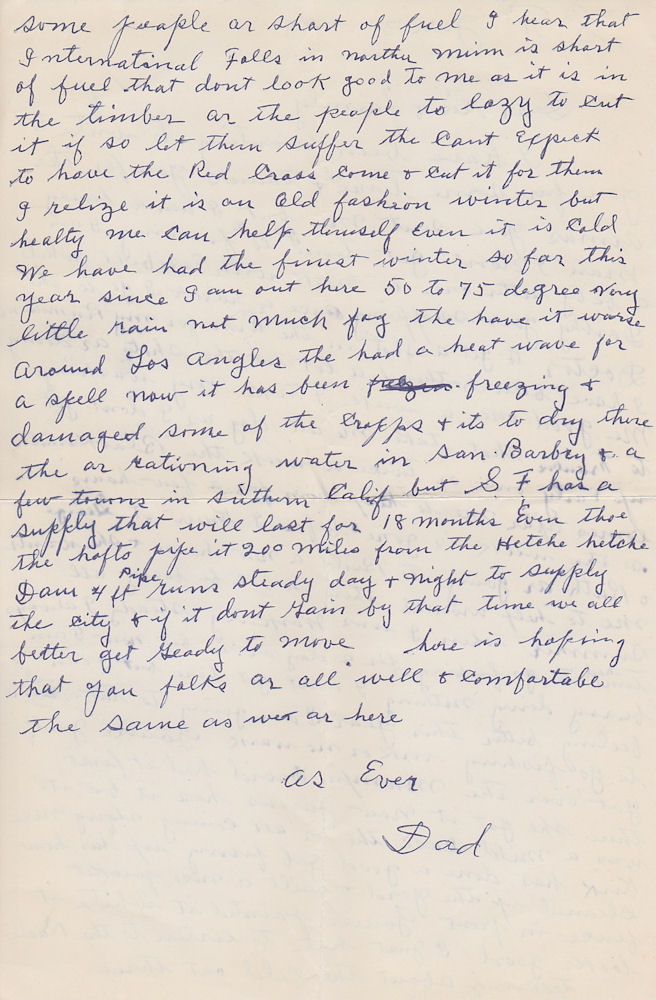 some peaple ar short of fuel I hear that
Internatinal Falls in northr Minn is short
of fuel that dont look good to me as it is in
the timber ar the people to lazy to cut
it if so let them suffer the Cant Expect
to have the Red Cross come & Cut it for them
I relize it is an Old fashion winter but
healty me Can help themself Even it is Cold
We have had the finest winter so far this
year since I am out here 50 to 75 degree very
little rain not much fog the have it worse
around Los Angles the had a heat wave for
a spell now it has been freezing &
damaged some of the Crapps & its to dry there
the ar rationing water in San Barbry & a
few towns in suthurn Calif but S F has a
supply that will last for 18 months Even thoe
the hafto pipe it 200 miles from the Hetche hetche
Dam 4 ft Pipe runs steady day & night to supply
the city & if it dont rain by that time we all
better get ready to move here is hoping
that you folks ar all well & Comfortabe
the same as we ar here
As Ever
Dad